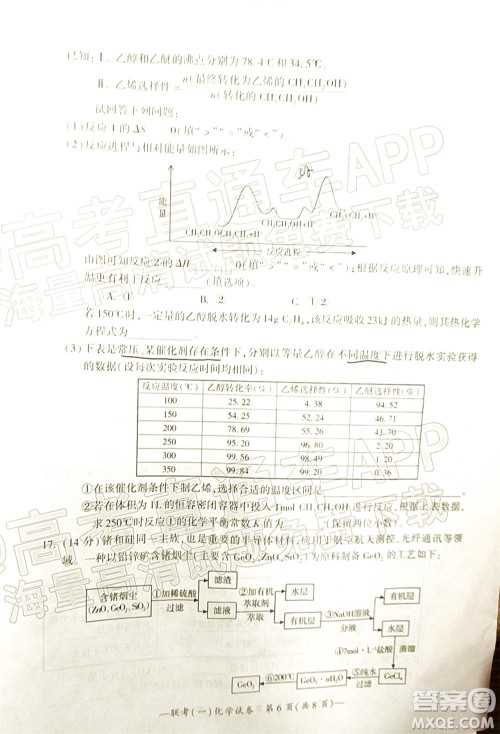 已知：Ⅰ．乙醇和乙醚的沸点分别为78.4℃和34.5℃
Ⅱ．乙烯选择性=n(最终转化为乙烯的CH₃CH₂OH)
试回答下列问题：
(1)反应1的ΔS 0(填“>”“=”或“<”)
(2)反应进程与相对能量如图所示：
能量
CH₃CH₂OCH₂CH₃+H⁺
CH₃CH₂OH+H⁺
反应进程
由图可知反应2的ΔH 0(填“>”“=”或“<”)；根据反应原理可知，快速升
温更有利于 (填选项)
若150℃时，一定量的乙醇脱水转化为14g C₂H₄，该反应吸收23kJ的热量，则其热化学
方程式为
(3)下表是常压、某催化剂存在条件下，分别以等量乙醇在不同温度下进行脱水实验获得
的数据(设每次实验反应时间均相同)
反应温度(℃) 乙醇转化率(%) 乙烯选择性(%) 乙醚选择性(%)
100 25.22 4.38 94.52
150 54.25 52.24 46.71
200 78.67 93.49 5.63
250 95.20 96.80 2.20
300 99.56 98.49 1.20
350 99.84 99.20 0.36
①在该催化剂条件下制乙烯，选择合适的温度区间是
②若在体积为1L的恒容密闭容器中投入1mol CH₃CH₂OH，根据上表数据，
求250℃时反应1的化学平衡常数K值为 (保留两位小数)
17．(14分)锗和硅同一主族，也是重要的半导体材料，应用于航空航天测控、光纤通讯等领
域 一种以铅锌矿含锗烟尘(主要含GeO₂、ZnO)为原料制备GeO₂的工艺如下：
含锗烟尘(ZnO、GeO₂、SiO₂)
①加稀硫酸 过滤
滤渣
滤液
②加有机萃取剂 萃取
水层
有机层
③NaOH溶液 分液
有机层
水层
④7mol·L⁻¹盐酸 蒸馏
GeCl₄
⑤纯水 过滤
GeO₂·nH₂O
⑥200℃
GeO₂
—联考(一)化学试卷 第6页(共8页)—
高考直通车APP
海量高清试题免费下载
答案圈
MXQE.COM